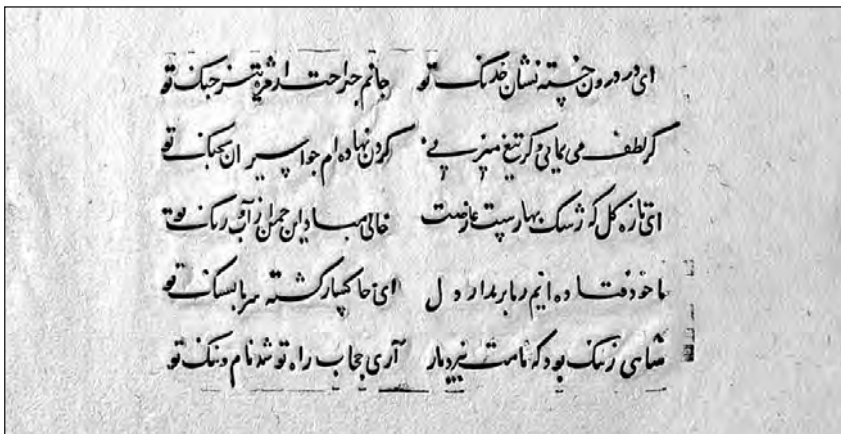 ای در درون خسته نشان خدنگ تو جانم جراحت از مژه تیز جنگ تو
گر لطف می نمایی و گر تیغ میزنی گردن نهاده ام چو اسیران بجنگ تو
ای تازه گل که رشک بهارست عارضت خالی مباد این چمن از آب و رنگ تو
ما خود فتاده ایم ز ما بر مدار دل ای خاکسار گشته سر ما بسنگ تو
شاهی ز ننگ بود که نامت نبرد یار آری حجاب راه تو شد نام و ننگ تو